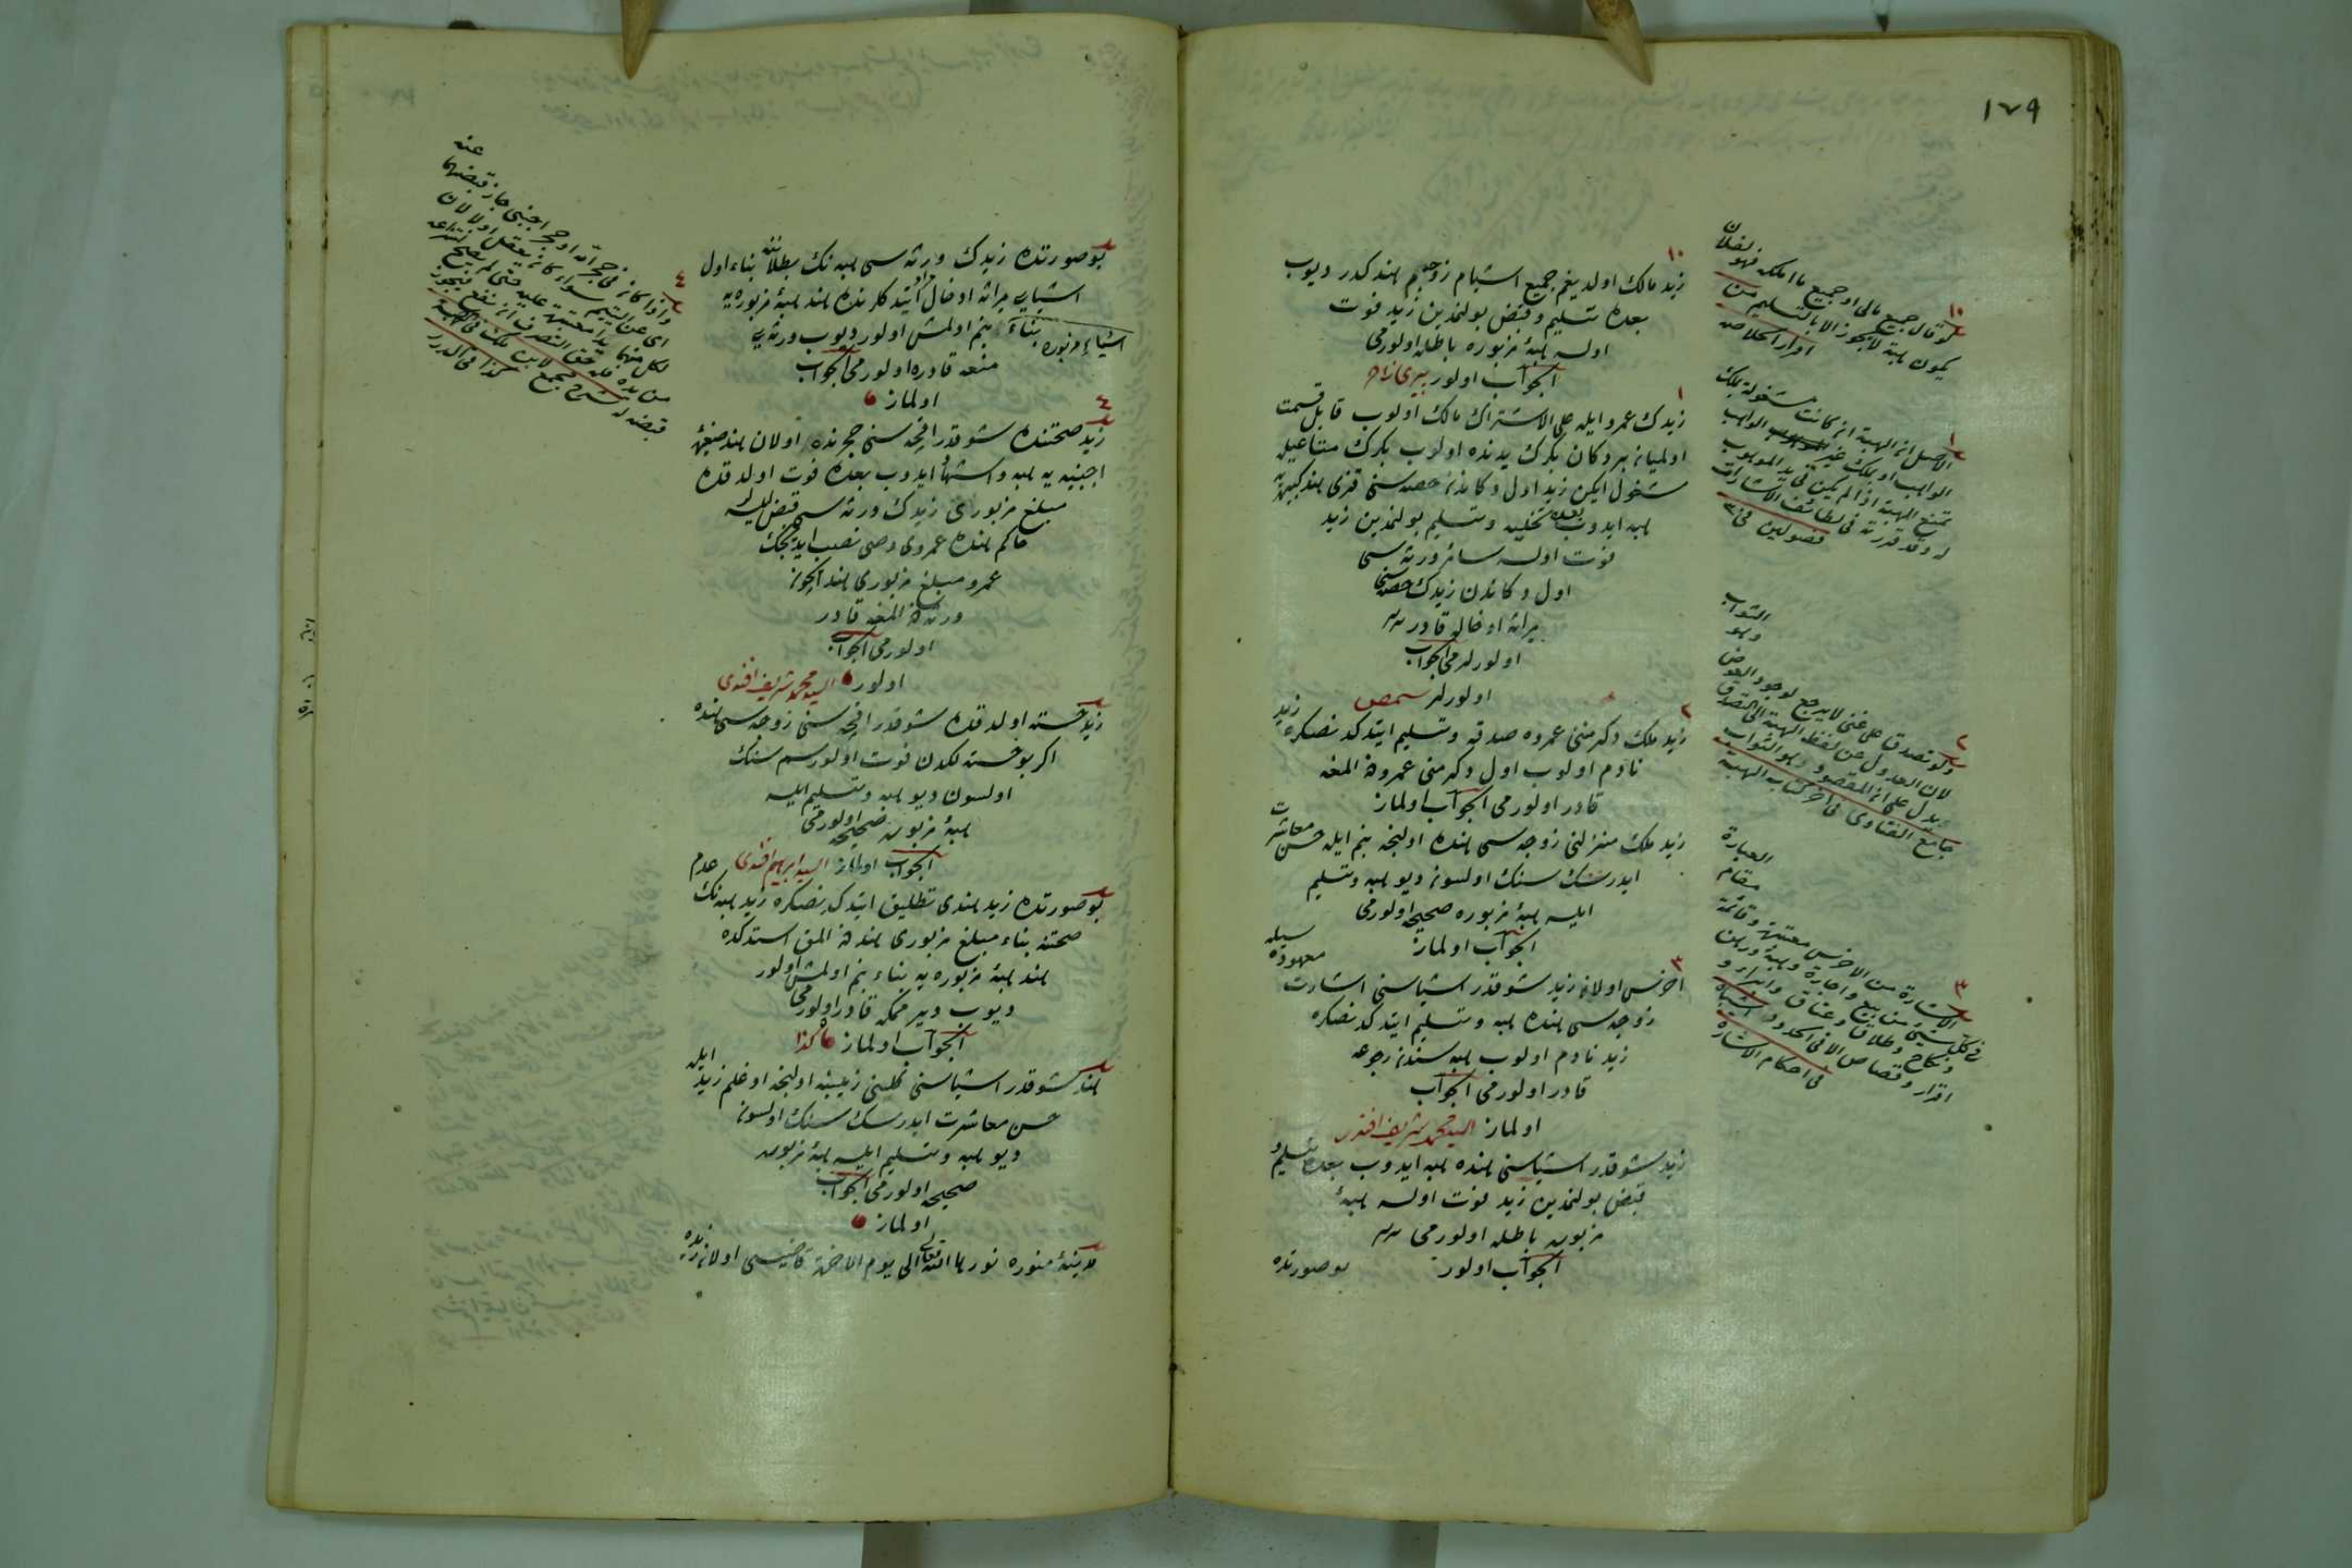 ١٧٩
زيد مالك اولديغم جميع اشيام زوجه‌م هندكدر ديوب
بعده تسليم و قبض بولنمدين زيد فوت
اولسه هبهٔ مزبوره باطله اولورمى
الجواب اولور
زيدك عمرو ايله على الاشتراك مالك اولوب قابل قسمت
اولميان بر دكان بكرك يدنده اولوب بكرك متاعيله
مشغول ايكن زيد اول دكاندن حصه سنى قزى هند كبيره‌يه
هبه ايدوب بعده تخليه و تسليم بولنمدين زيد
فوت اولسه سائر ورثه سى
اول دكاندن زيدك حصه سنى
ميراثه ادخاله قادر
اولورلرمى الجواب
اولورلر
زيد ملك دكرمننى عمروه صدقه و تسليم ايتدكدنصكره زيد
نادم اولوب اول دكرمنى عمرودن المغه
قادر اولورمى الجواب اولماز
زيد ملك منزلنى زوجه سى هنده اولنجه بنم ايله حسن معاشرت
ايدرسك سنك اولسون ديو هبه و تسليم
ايلسه هبهٔ مزبوره صحيحه اولورمى
الجواب اولماز
اخرس اولان زيد شو قدر اشياسنى اشارت معهوده سيله
زوجه سى هنده هبه و تسليم ايتدكدنصكره
زيد نادم اولوب هبه سندن رجوعه
قادر اولورمى الجواب
اولماز السيد محمد شريف افندى
زيد شو قدر اشياسنى هنده هبه ايدوب بعده تسليم و
قبض بولنمدين زيد فوت اولسه هبهٔ
مزبوره باطله اولورمى
الجواب اولور
بو صورتده
لو قال جميع مالى او جميع ما املكه فهو لفلان
يكون هبة لا يجوز الا بالتسليم من
اقرار الخلاصه
الاصل ان الهبة ان كانت مشغولة بملك
الواهب او بملك غير الواهب
تمنع الهبة اذا لم يكن فى يد الموهوب
له وقد قررته فى لطائف الاشارات
فصولين فى
ولو تصدق على غنى لا يرجع لوجود العوض وهو الثواب
لان العدول عن لفظ الهبة الى التصدق
يدل على ان المقصود وهو الثواب
جامع الفتاوى فى آخر كتاب الهبة
الاشارة من الاخرس معتبرة وقائمة مقام العبارة
فى كل شيئ من بيع واجارة وهبة ورهن
ونكاح وطلاق وعتاق وابراء و
اقرار وقصاص الا فى الحدود اشباه
فى احكام الاشارة
بو صورتده زيدك ورثه سى هبه نك بطلاننه بناء اول
اشيايى ميراثه ادخال مراد ايتدكلرنده هند هبهٔ مزبوره‌يه
بناء اشياء مزبوره بنم اولمش اولور ديوب ورثه‌يى
منعه قادره اولورمى الجواب
اولماز
زيد صحتنده شو قدر اقچه سنى حجرنده اولان هند صغيرهٔ
اجنبيه‌يه هبه و اشهاد ايدوب بعده فوت اولدقده
مبلغ مزبورى زيدك ورثه سى قبض ايلسه
حاكم هنده عمروى وصى نصب ايديجك
عمرو مبلغ مزبورى هند ايچون
ورثه دن المغه قادر
اولورمى الجواب
اولور السيد محمد شريف افندى
زيد خسته اولدقده شو قدر اقچه سنى زوجه سى هنده
اكر بو خسته لكدن فوت اولورسم سنك
اولسون ديو هبه و تسليم ايلسه
هبهٔ مزبوره صحيحه اولورمى
الجواب اولماز السيد ابراهيم افندى
بو صورتده زيد هندى تطليق ايتدكدنصكره زيد هبه نك عدم
صحتنه بناء مبلغ مزبورى هنددن المق استدكده
هند هبهٔ مزبوره‌يه بناء بنم اولمش اولور
ديوب ويرممكه قادر اولورمى
الجواب اولماز كذا
هند شو قدر اشياسنى اولنجه اوغلم زيد ايله
حسن معاشرت ايدرسك سنك اولسون
ديو هبه و تسليم ايلسه هبهٔ مزبوره
صحيحه اولورمى الجواب
اولماز
مدينهٔ منوره نورها الله تعالى الى يوم الآخرة قاضيسى اولان زيد
واذا كان فى حجر امه او حجر اجنبى جاز قبضهما عنه
اى عن اليتيم سواء كان يعقل او لا لان
لكل منهما يدا معتبرة عليه حتى لم يصح انتزاعه
من يده حق التصرف ان نفع فيجوز
قبضه له شرح مجمع لابن ملك فى الهبة
كذا فى الدرر